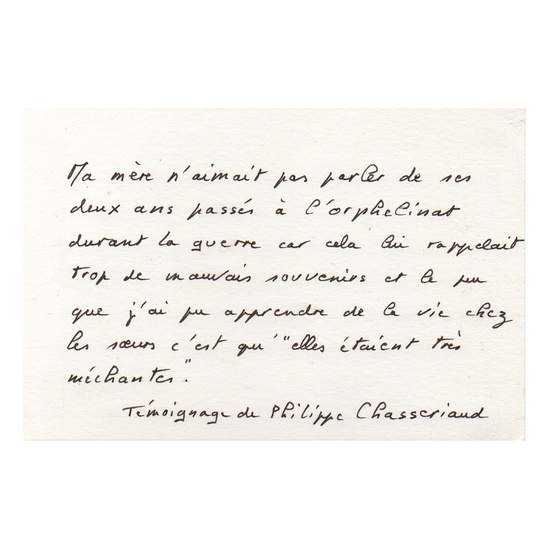 Ma mère n'aimait pas parler de ses
deux ans passés à l'orphelinat
durant la guerre car cela lui rappelait
trop de mauvais souvenirs et le peu
que j'ai pu apprendre de la vie chez
les sœurs c'est qu'"elles étaient très
méchantes".
Témoignage de Philippe Chasseriaud